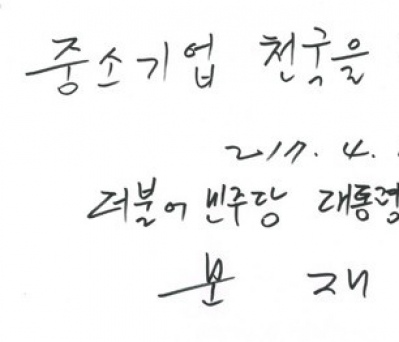 중소기업 천국을
2017. 4.
더불어 민주당 대통령
문 재